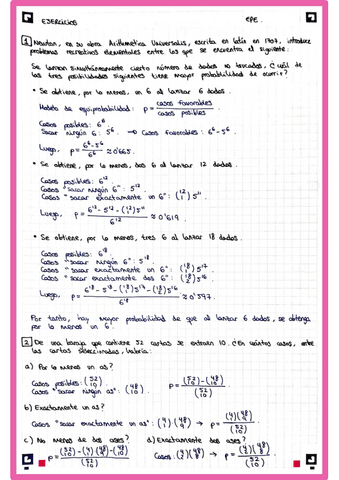 EJERCICIOS
CPE.
1 Newton, en su obra Arithmetica Universalis, escrita en latín en 1707, introduce
problemas recreativos elementales entre los que se encuentra el siguiente:
Se lanzan simultáneamente cierto número de dados no trucados, ¿cuál de
las tres posibilidades siguientes tiene mayor probabilidad de ocurrir?
• Se obtiene, por lo menos, un 6 al lanzar 6 dados.
Modelo de equiprobabilidad: p = casos favorables / casos posibles
Casos posibles: 6⁶
Sacar ningún 6: 5⁶ → Casos favorables: 6⁶-5⁶
Luego, p = (6⁶-5⁶)/6⁶ ≈ 0'665.
• Se obtiene, por lo menos, dos 6 al lanzar 12 dados.
Casos posibles: 6¹²
Casos "sacar ningún 6": 5¹²
Casos "sacar exactamente un 6": (12 1) 5¹¹
Luego, p = (6¹² - 5¹² - (12 1) 5¹¹)/6¹² ≈ 0'619.
• Se obtiene, por lo menos, tres 6 al lanzar 18 dados.
Casos posibles: 6¹⁸
Casos "sacar ningún 6": 5¹⁸
Casos "sacar exactamente un 6": (18 1) 5¹⁷
Casos "sacar exactamente dos 6": (18 2) 5¹⁶
Luego, p = (6¹⁸ - 5¹⁸ - (18 1) 5¹⁷ - (18 2) 5¹⁶)/6¹⁸ ≈ 0'597.
Por tanto, hay mayor probabilidad de que al lanzar 6 dados, se obtenga
por lo menos un 6.
2 De una baraja que contiene 52 cartas se extraen 10. ¿En cuántos casos, entre
las cartas seleccionadas, habría:
a) Por lo menos un as?
Casos posibles: (52 10)
Casos "sacar ningún as": (48 10)
p = ((52 10) - (48 10))/(52 10)
b) Exactamente un as?
Casos "sacar exactamente un as": (4 1)·(48 9) → p = (4 1)(48 9)/(52 10)
c) No menos de dos ases?
p = ((52 10) - (4 1)(48 9) - (48 10))/(52 10)
d) Exactamente dos ases?
Casos: (4 2)(48 8) → p = (4 2)(48 8)/(52 10).